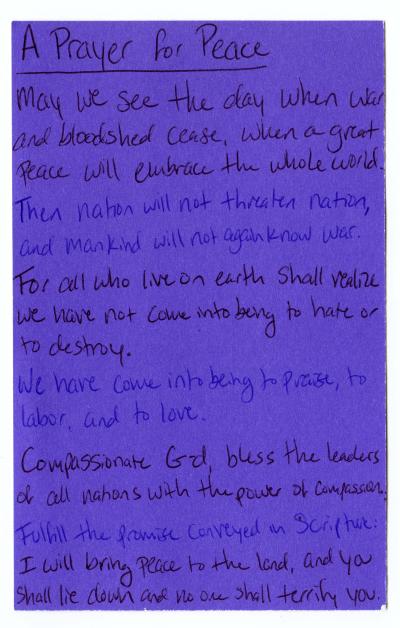 A Prayer for Peace
May we see the day when war
and bloodshed cease, when a great
Peace will embrace the whole world.
Then nation will not threaten nation,
and mankind will not again know war.
For all who live on earth shall realize
we have not come into being to hate or
to destroy.
We have come into being to praise, to
labor, and to love.
Compassionate G-d, bless the leaders
of all nations with the power of compassion.
Fulfill the promise conveyed in Scripture:
I will bring peace to the land, and you
shall lie down and no one shall terrify you.